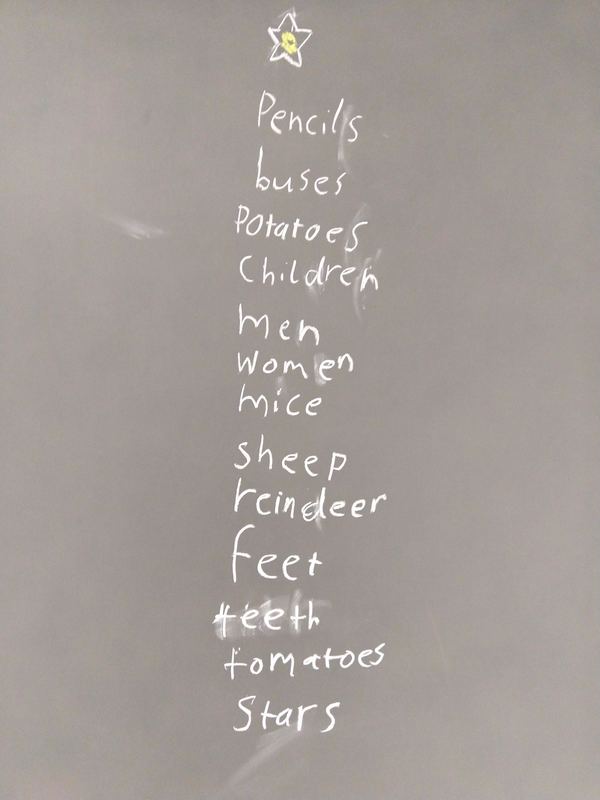 Pencils
buses
Potatoes
Children
men
women
mice
sheep
reindeer
feet
teeth
tomatoes
Stars